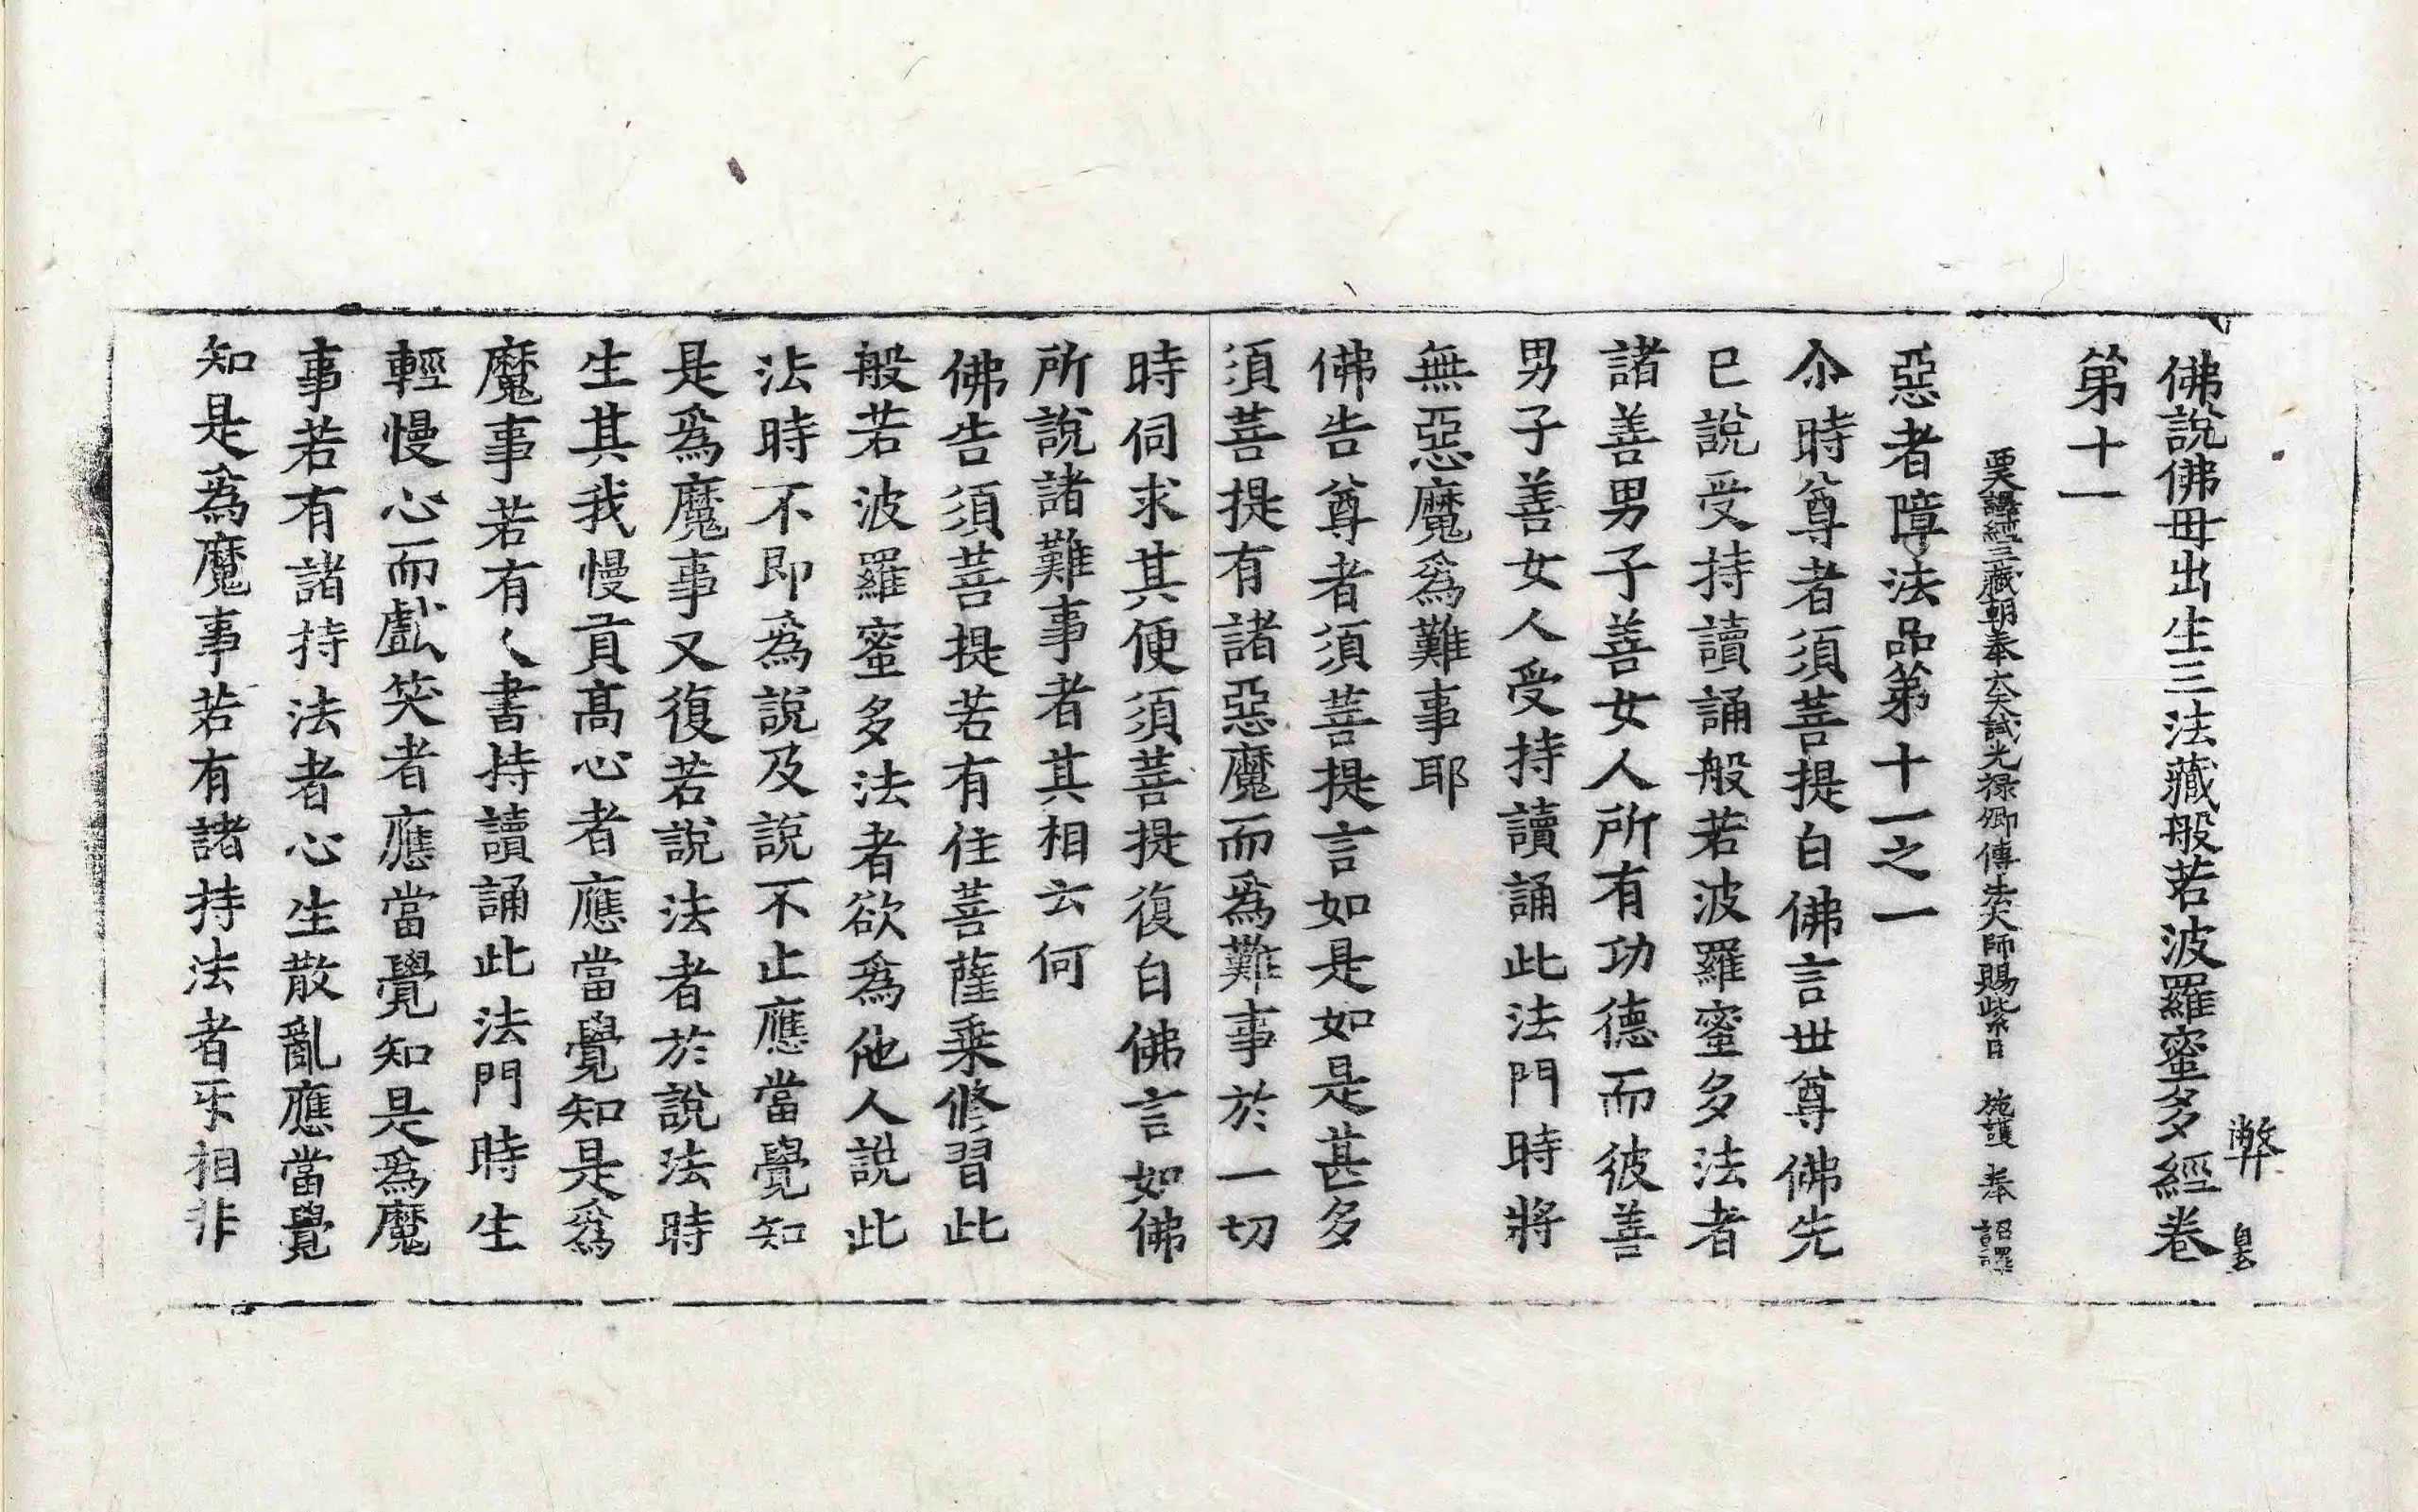 佛說佛毋出生三法藏般若波羅蜜多經卷
弊
第十一
譯經三藏朝奉大夫試光祿卿傳法大師賜紫臣 施護 奉 詔譯
惡者障法品第十一之一
尒時尊者須菩提白佛言世尊佛先
已說受持讀誦般若波羅蜜多法者
諸善男子善女人所有功德而彼善
男子善女人受持讀誦此法門時將
無惡魔爲難事耶
佛告尊者須菩提言如是如是甚多
須菩提有諸惡魔而爲難事於一切
時伺求其便須菩提復白佛言如佛
所說諸難事者其相云何
佛告須菩提若有住菩薩乗修習此
般若波羅蜜多法者欲爲他人說此
法時不即爲說及說不止應當覺知
是爲魔事又復若說法者於說法時
生其我慢貢髙心者應當覺知是爲
魔事若有人書持讀誦此法門時生
輕慢心而戲笑者應當覺知是爲魔
事若有諸持法者心生散亂應當覺
知是爲魔事若有諸持法者乐相非